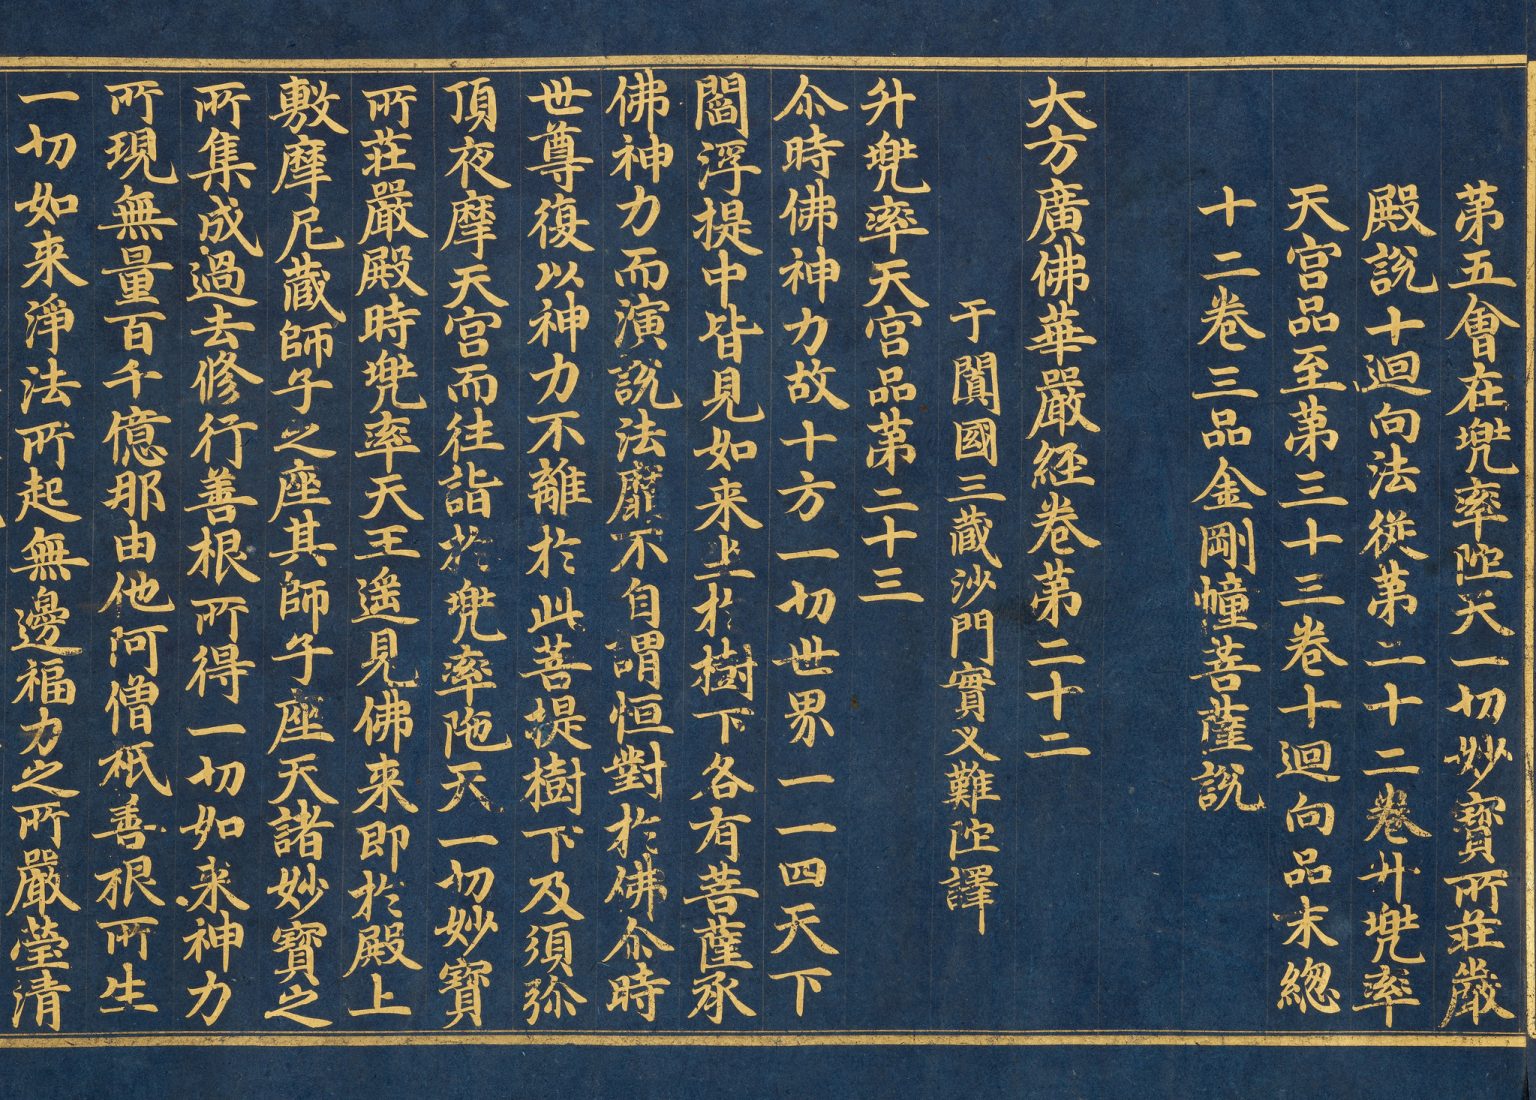 第五會在兜率陀天一切妙寶所莊嚴
殿說十迴向法從第二十二卷升兜率
天宮品至第三十三卷十迴向品末總
十二卷三品金剛幢菩薩說
大方廣佛華嚴經卷第二十二
于闐國三藏沙門實叉難陀譯
升兜率天宮品第二十三
尒時佛神力故十方一切世界一一四天下
閻浮提中皆見如来坐於樹下各有菩薩承
佛神力而演說法靡不自謂恒對於佛尒時
世尊復以神力不離於此菩提樹下及須弥
頂夜摩天宮而往詣於兜率陁天一切妙寶
所莊嚴殿時兜率天王遥見佛来即於殿上
敷摩尼藏師子之座其師子座天諸妙寶之
所集成過去修行善根所得一切如来神力
所現無量百千億那由他阿僧祇善根所生
一切如来淨法所起無邊福力之所嚴瑩清